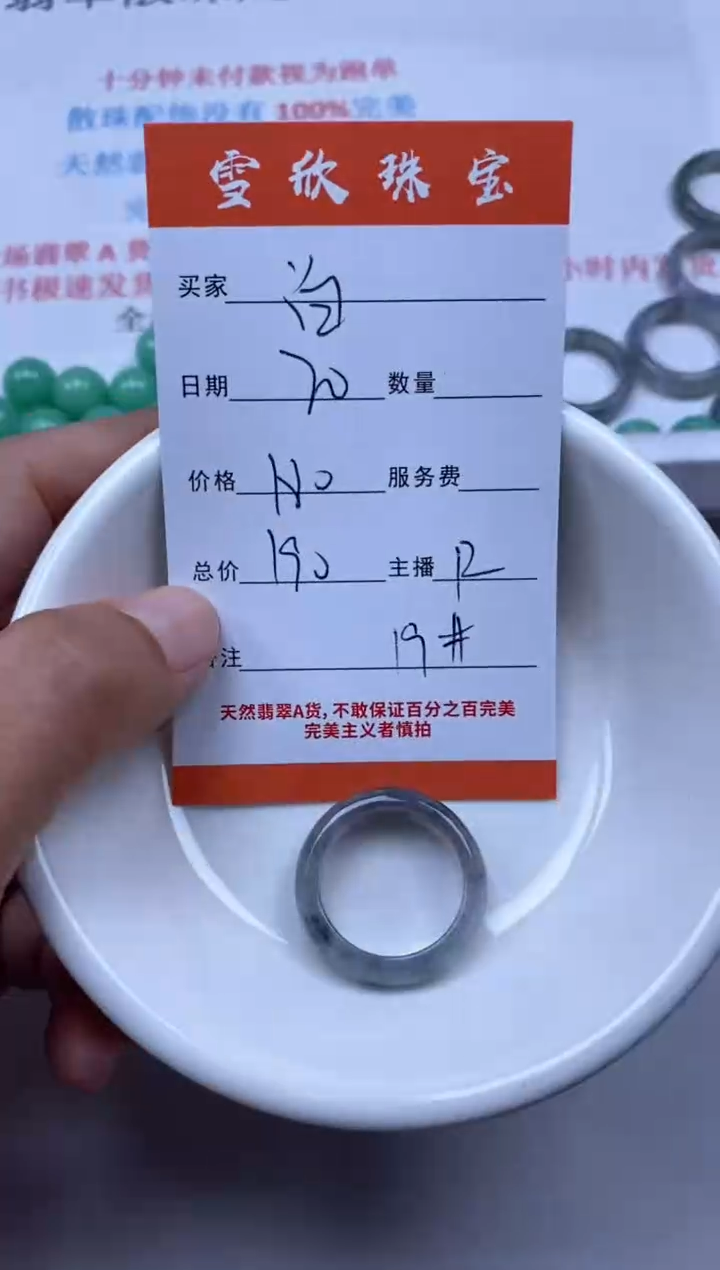 十分钟未付款视为跑单
散珠配饰没有 100%完美
天然翡
雪欣珠宝
场翡翠 A 货
书极速发货
小时内发货
买家
日期 20 数量
价格 服务费
总价 190 主播 12
注 19#
天然翡翠A货,不敢保证百分之百完美
完美主义者慎拍